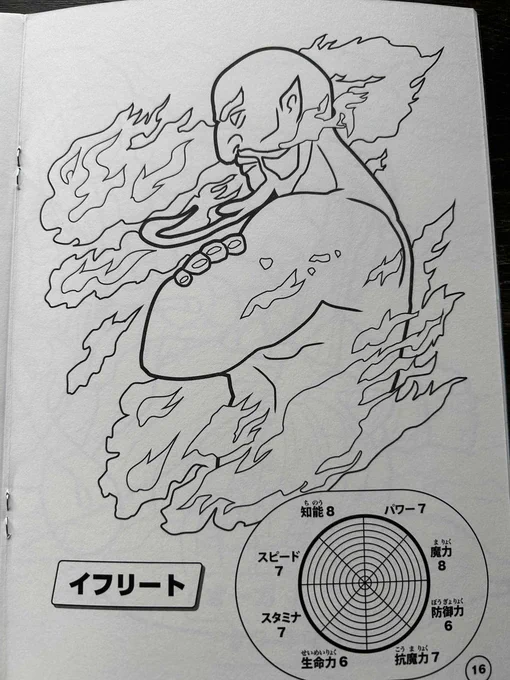 ちのう
知能 8
パワー 7
まりょく
魔力
8
ぼうぎょりょく
防御力
6
こうまりょく
抗魔力 7
せいめいりょく
生命力 6
スタミナ
7
スピード
7
イフリート
16